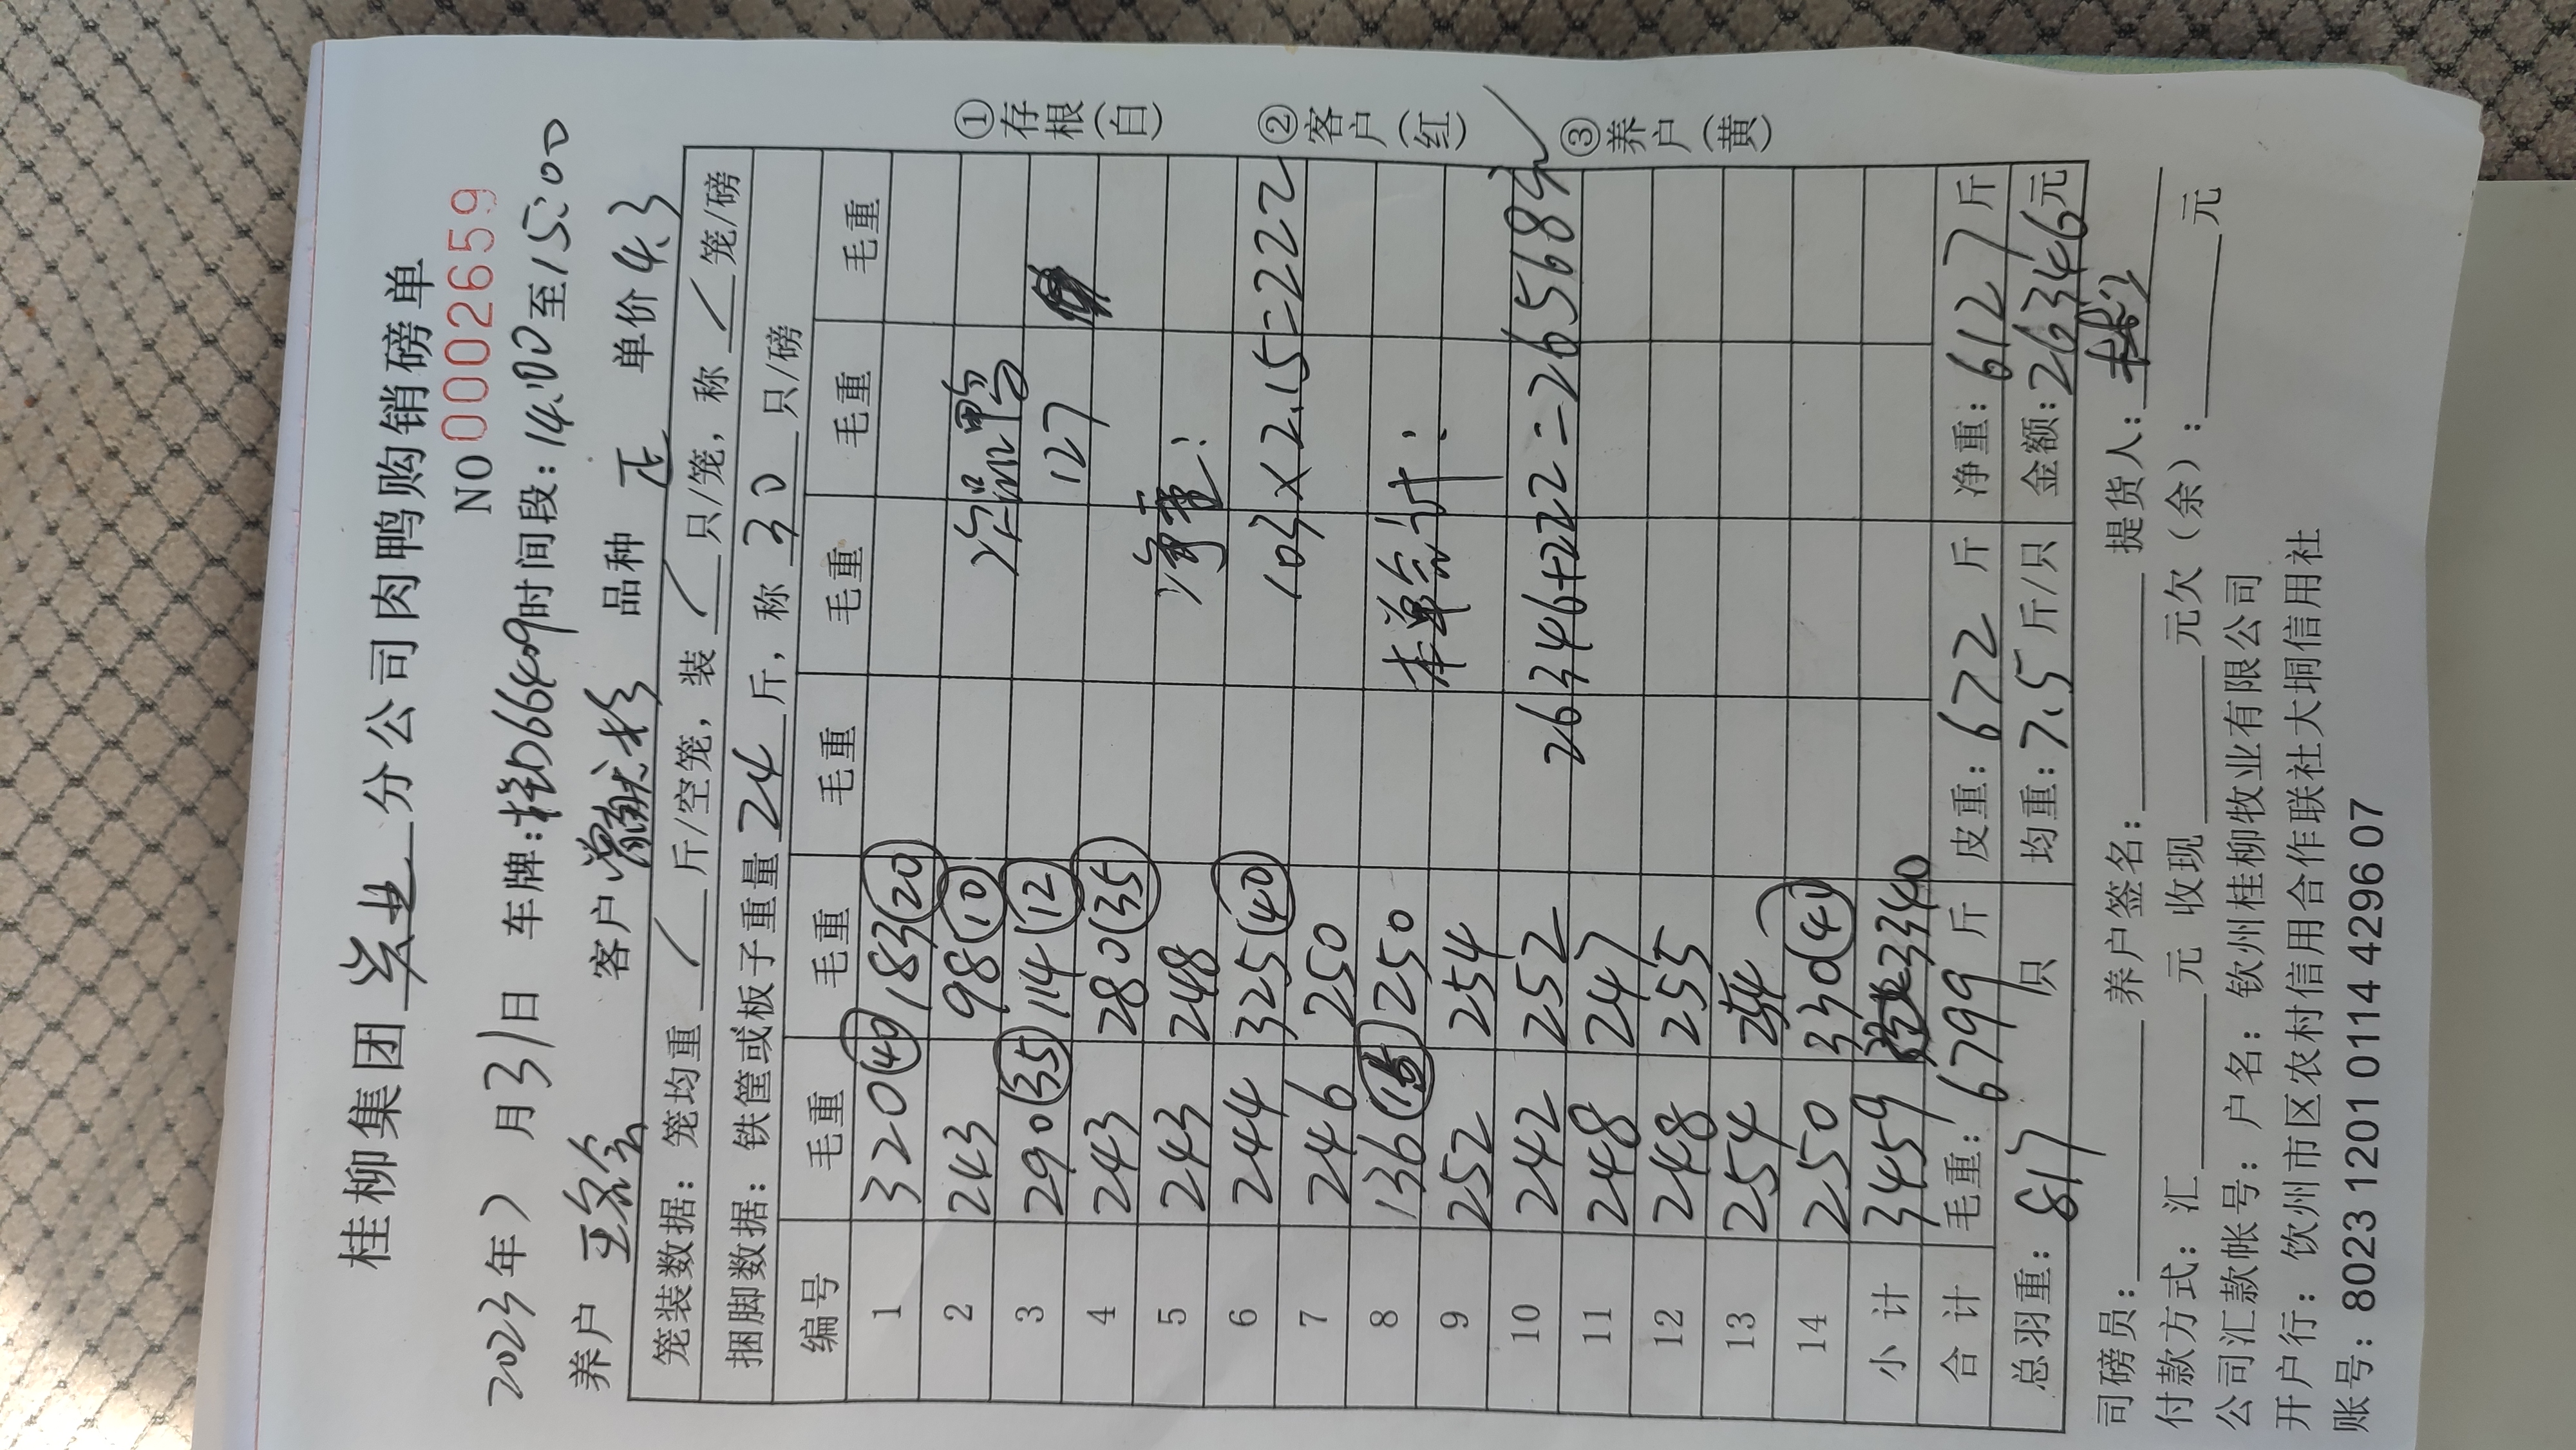 桂柳集团 分公司肉鸭购销磅单
NO 0002659
2023年7月31日 车牌:桂D66409时间段:14:00至15:00
养户 客户 品种 正 单价 4.3
笼装数据:笼均重 / 斤/空笼,装 / 只/笼,称 / 笼/磅
捆脚数据:铁筐或板子重量 24 斤,称 30 只/磅
编号 毛重 毛重 毛重 毛重 毛重 毛重
1 320(40) 183(20)
2 243 98(10) 次品鸭
3 290(35) 114(12) 127
4 243 280(35)
5 243 248 净重:
6 244 325(40) 103×2.15=222
7 246 250
8 136 250 本单合计:
9 252 254
10 242 252 26346+222=26568元
11 248 247
12 248 255
13 254 254
14 250 330(41)
小计 3459 3340
合计 毛重:6799斤 皮重:672斤 净重:6127斤
总羽重:817只 均重:7.5斤/只 金额:26346元
司磅员: 养户签名: 提货人:
付款方式:汇 元 收现 元欠(余): 元
公司汇款帐号:户名:钦州桂柳牧业有限公司
开户行:饮州市区农村信用合作联社大垌信用社
账号:8023 1201 0114 4296 07
①存根(白)
②客户(红)
③养户(黄)